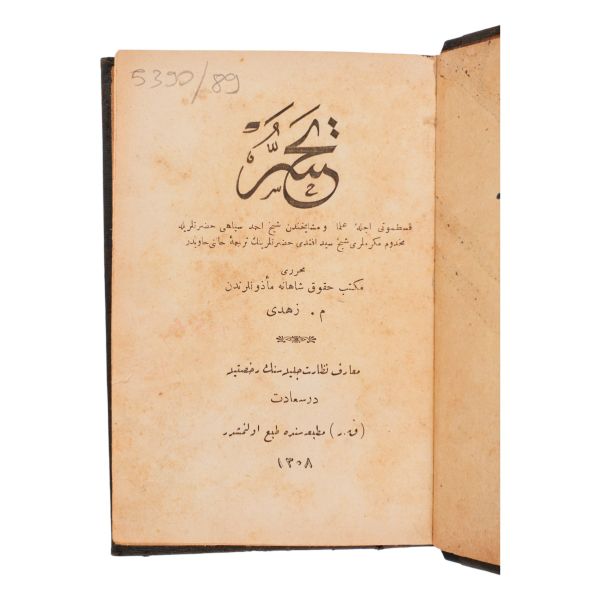 5390/89
تحسر
قسطمونی اجلهٔ علما و مشایخندن شیخ احمد سیاهی حضرتلریله
مخدوم مکرملری شیخ سید افندی حضرتلرینك ترجمهٔ حالنی حاویدر
محرری
مکتب حقوق شاهانه مأذونلرندن
م . زهدی
معارف نظارت جلیله سنك رخصتیله
درسعادت
(ق . ر) مطبعه سنده طبع اولنمشدر
١٣٠٨